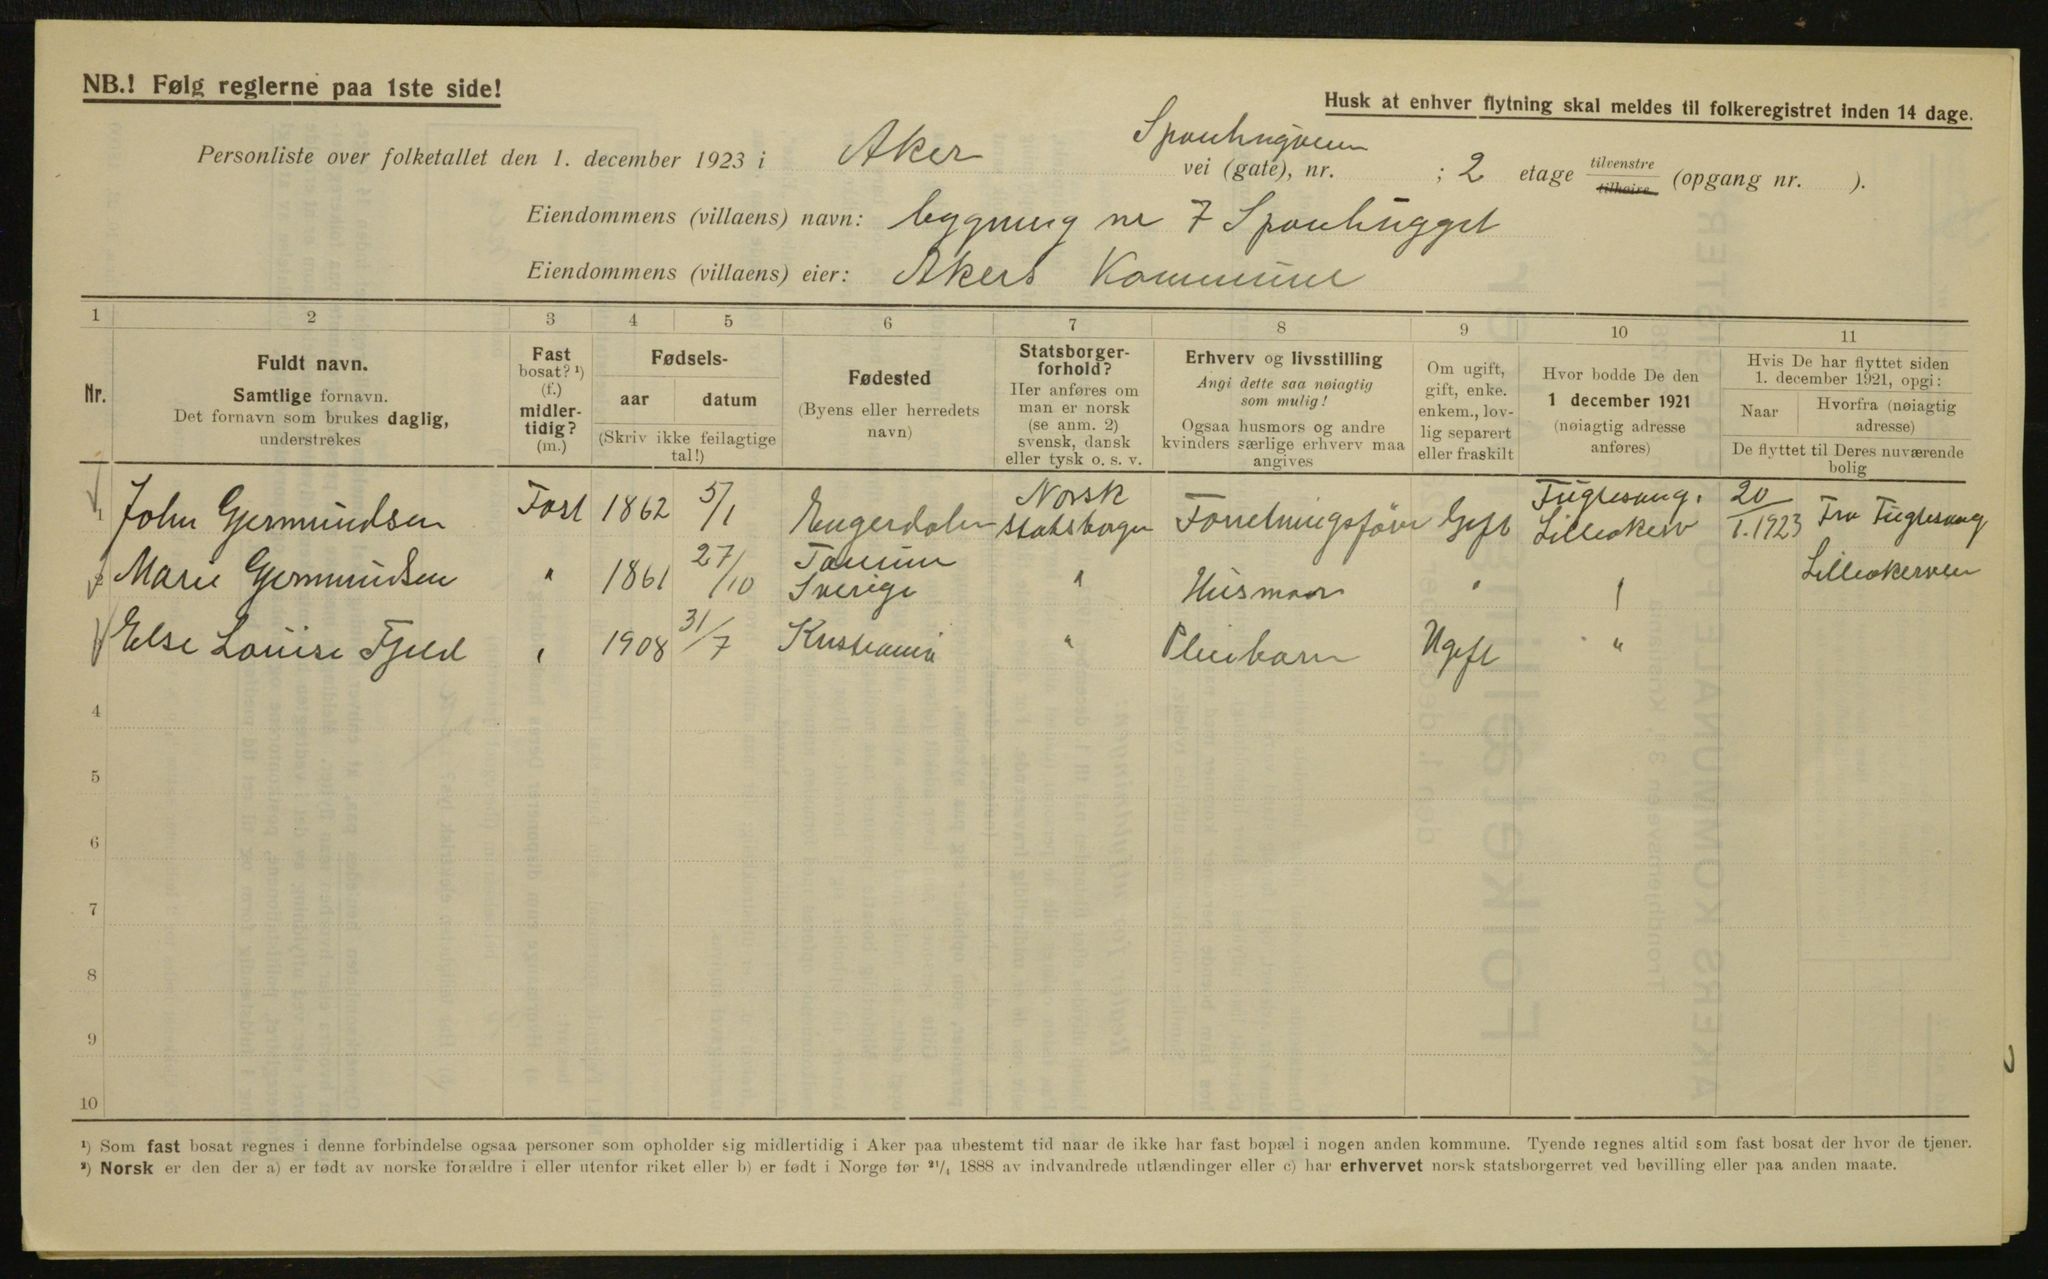 NB.! Følg reglerne paa 1ste side!
Husk at enhver flytning skal meldes til folkeregistret inden 14 dage.
Personliste over folketallet den 1. december 1923 i Aker vei (gate), nr. ; 2 etage tilvenstre tilhøire (opgang nr. ).
Eiendommens (villaens) navn: bygning nr 7 Sponhugget
Eiendommens (villaens) eier: Akers Kommune
1 2 3 4 5 6 7 8 9 10 11
Nr.
Fuldt navn.
Samtlige fornavn.
Det fornavn som brukes daglig,
understrekes
Fast
bosat? ¹)
(f.)
midler-
tidig?
(m.)
Fødsels-
aar datum
(Skriv ikke feilagtige
tal!)
Fødested
(Byens eller herredets
navn)
Statsborger-
forhold?
Her anføres om
man er norsk
(se anm. 2)
svensk, dansk
eller tysk o. s. v.
Erhverv og livsstilling
Angi dette saa nøiagtig
som mulig!
Ogsaa husmors og andre
kvinders særlige erhverv maa
angives
Om ugift,
gift, enke.
enkem., lov-
lig separert
eller fraskilt
Hvor bodde De den
1 december 1921
(nøiagtig adresse
anføres)
Hvis De har flyttet siden
1. december 1921, opgi:
Naar
Hvorfra (nøiagtig
adresse)
De flyttet til Deres nuværende
bolig
1 John Gjermundsen Fast 1862 5/1 Engerdalen Norsk Statsborger Forretningsfører Gift Fuglesang. Lilleakerv 20/1.1923 Fra Fuglesang
Lilleakerveien
2 Marie Gjermundsen " 1861 27/10 Tanum Sverige " Husmor " "
Else Louise Fjeld " 1908 31/7 Kristiania " Pleiebarn Ugift "
4
5
6
7
8
9
10
¹) Som fast bosat regnes i denne forbindelse ogsaa personer som opholder sig midlertidig i Aker paa ubestemt tid naar de ikke har fast bopæl i nogen anden kommune. Tyende regnes altid som fast bosat der hvor de tjener.
²) Norsk er den der a) er født av norske forældre i eller utenfor riket eller b) er født i Norge før 21/1 1888 av indvandrede utlændinger eller c) har erhvervet norsk statsborgerret ved bevilling eller paa anden maate.